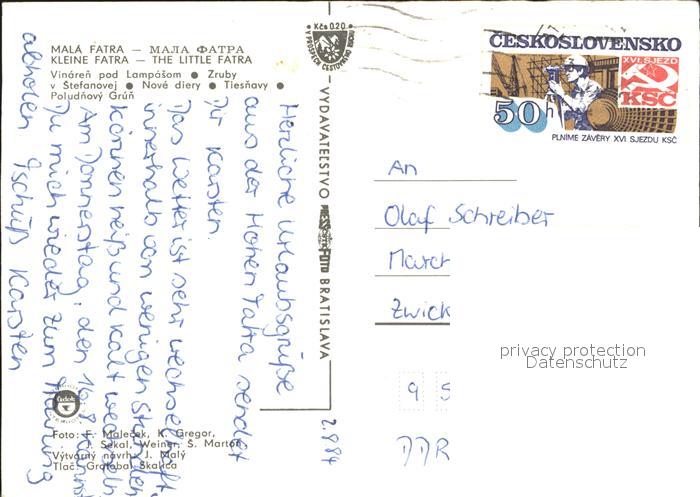 MALÁ FATRA — МАЛА ФАТРА
KLEINE FATRA — THE LITTLE FATRA
Vináreň pod Lampášom ● Zruby
v Štefanovej ● Nové diery ● Tiesňavy ●
Poludňový Grúň
Herzliche Urlaubsgrüße
aus der Hohen Tatra sendet
Dir Karsten.
Das Wetter ist sehr wechselhaft.
innerhalb von wenigen Stunden
können heiß und kalt wechseln
Am Donnerstag, den 16.8. kannst
Du mich wieder zum Training
abholen Tschüß Karsten
Čedok
Foto: F. Maleček, K. Gregor,
J. Sekal, Weiner, Š. Martoň
Výtvarný návrh J. Malý
Tlač: Grafobal Skalica
VYDAVATEĽSTVO
BRATISLAVA
2.8.84
Kčs 0.20
V PROSPECH CESTOVNÉHO RUCHU
ČESKOSLOVENSKO
XVI. SJEZD
KSČ
50 h
PLNÍME ZÁVĚRY XVI. SJEZDU KSČ
An
Olaf Schreiber
March
Zwick
9 5
DDR
privacy protection
Datenschutz